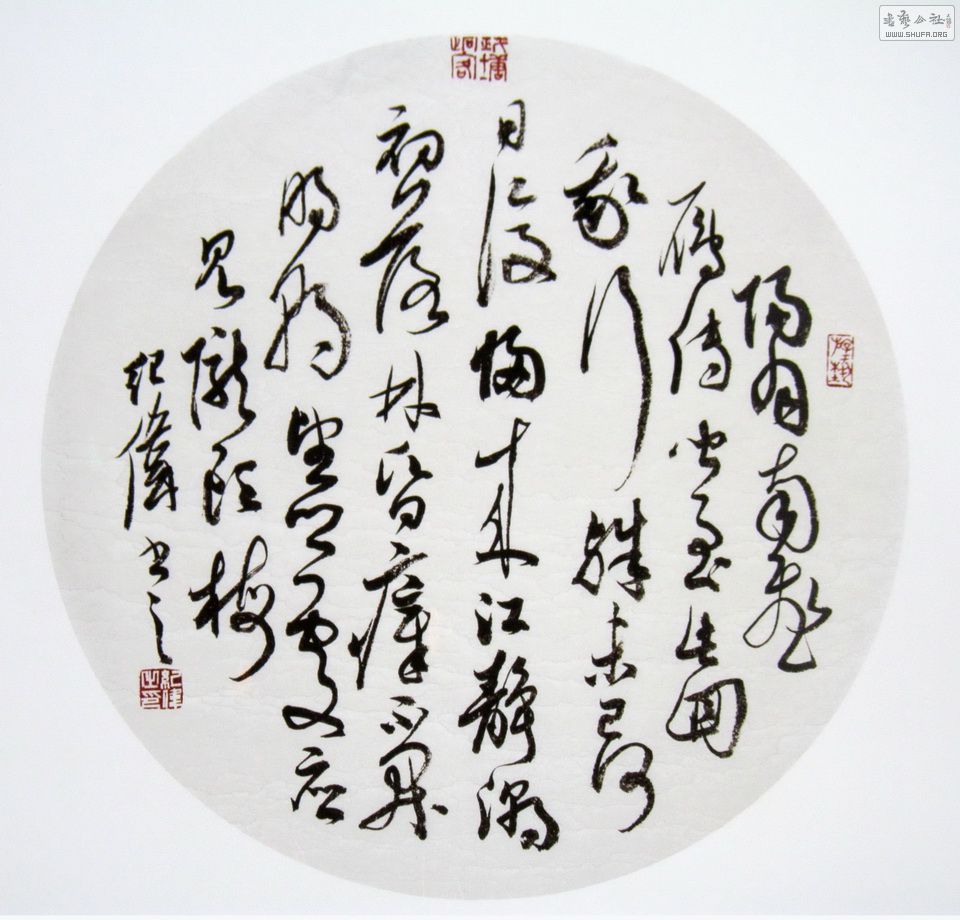 陽月南飛
雁傳聞至此回
我行殊未已何
日復歸来江靜潮
初落林昏瘴不開
明朝望鄉處應
見隴頭梅
紀偉書之
紀偉之印
書藝公社
WWW.SHUFA.ORG